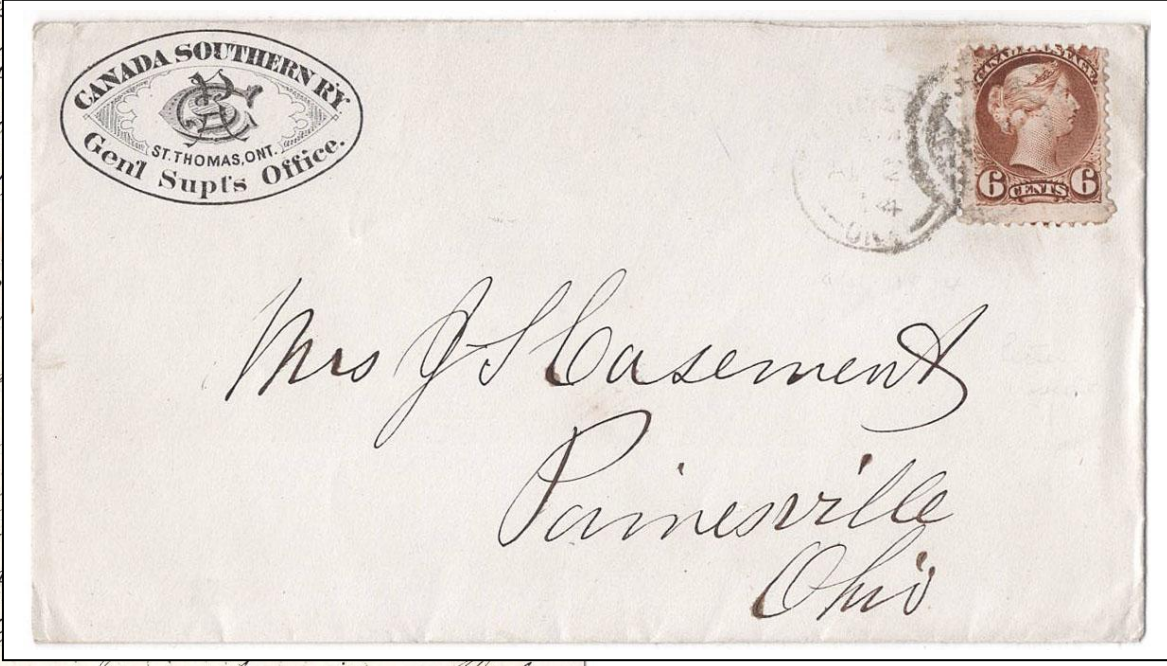 CANADA SOUTHERN RY.
ST. THOMAS, ONT.
Gen'l Supt's Office.
CANADA POSTAGE
6 CENTS 6
ONT
Mrs J S Casement
Painesville
Ohio